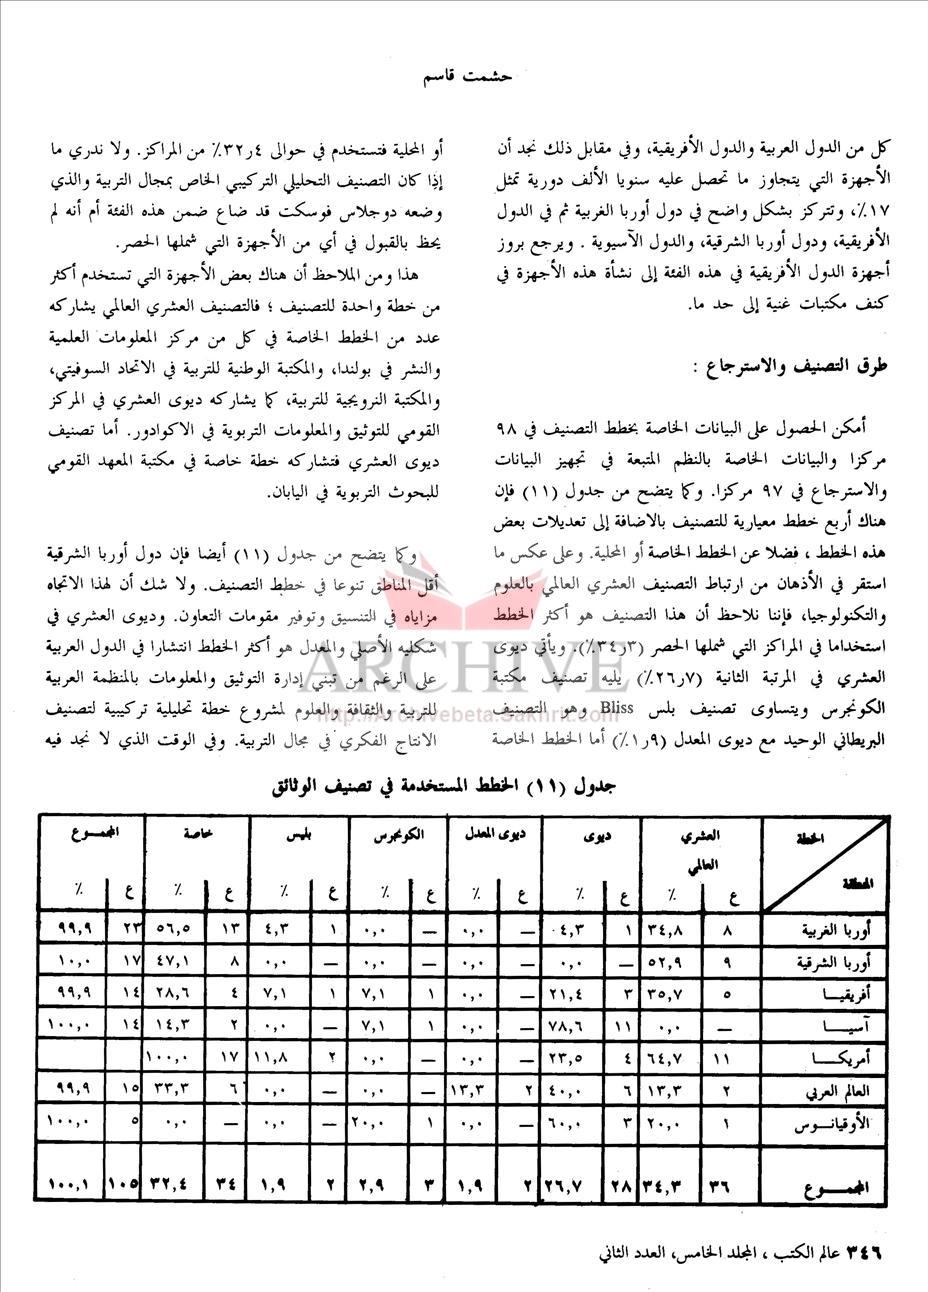 حشمت قاسم
كل من الدول العربية والدول الأفريقية، وفي مقابل ذلك نجد أن
الأجهزة التي يتجاوز ما تحصل عليه سنويا الألف دورية تمثل
١٧٪، وتتركز بشكل واضح في دول أوربا الغربية ثم في الدول
الأفريقية، ودول أوربا الشرقية، والدول الآسيوية . ويرجع بروز
أجهزة الدول الأفريقية في هذه الفئة إلى نشأة هذه الأجهزة في
كنف مكتبات غنية إلى حد ما.
طرق التصنيف والاسترجاع :
أمكن الحصول على البيانات الخاصة بخطط التصنيف في ٩٨
مركزا والبيانات الخاصة بالنظم المتبعة في تجهيز البيانات
والاسترجاع في ٩٧ مركزا. وكما يتضح من جدول (١١) فإن
هناك أربع خطط معيارية للتصنيف بالاضافة إلى تعديلات بعض
هذه الخطط ، فضلا عن الخطط الخاصة أو المحلية. وعلى عكس ما
استقر في الأذهان من ارتباط التصنيف العشري العالمي بالعلوم
والتكنولوجيا، فإننا نلاحظ أن هذا التصنيف هو أكثر الخطط
استخداما في المراكز التي شملها الحصر (٣ر٣٤٪). ويأتي ديوى
العشري في المرتبة الثانية (٧ر٢٦٪) يليه تصنيف مكتبة
الكونجرس ويتساوى تصنيف بلس Bliss وهو التصنيف
البريطاني الوحيد مع ديوى المعدل (٩ر١٪) أما الخطط الخاصة
أو المحلية فتستخدم في حوالى ٤ر٣٢٪ من المراكز. ولا ندري ما
إذا كان التصنيف التحليلي التركيبي الخاص بمجال التربية والذي
وضعه دوجلاس فوسكت قد ضاع ضمن هذه الفئة أم أنه لم
يحظ بالقبول في أي من الأجهزة التي شملها الحصر.
هذا ومن الملاحظ أن هناك بعض الأجهزة التي تستخدم أكثر
من خطة واحدة للتصنيف ؛ فالتصنيف العشري العالمي يشاركه
عدد من الخطط الخاصة في كل من مركز المعلومات العلمية
والنشر في بولندا، والمكتبة الوطنية للتربية في الاتحاد السوفيتي،
والمكتبة النرويجية للتربية، كما يشاركه ديوى العشري في المركز
القومي للتوثيق والمعلومات التربوية في الاكوادور. أما تصنيف
ديوى العشري فتشاركه خطة خاصة في مكتبة المعهد القومي
للبحوث التربوية في اليابان.
وكما يتضح من جدول (١١) أيضا فإن دول أوربا الشرقية
أقل المناطق تنوعا في خطط التصنيف. ولا شك أن لهذا الاتجاه
مزاياه في التنسيق وتوفير مقومات التعاون. وديوى العشري في
شكليه الأصلي والمعدل هو أكثر الخطط انتشارا في الدول العربية
على الرغم من تبني إدارة التوثيق والمعلومات بالمنظمة العربية
للتربية والثقافة والعلوم لمشروع خطة تحليلية تركيبية لتصنيف
الانتاج الفكري في مجال التربية. وفي الوقت الذي لا نجد فيه
ARCHIVE
http://Archivebeta.Sakhrit.com
جدول (١١) الخطط المستخدمة في تصنيف الوثائق
الخطة العشري ديوى ديوى المعدل الكونجرس بليس خاصة المجموع
العالمي
المنطقة ع ٪ ع ٪ ع ٪ ع ٪ ع ٪ ع ٪ ع ٪
أوربا الغربية ٨ ٣٤,٨ ١ ٤,٣ — ٠,٠ — ٠,٠ ١ ٤,٣ ١٣ ٥٦,٥ ٢٣ ٩٩,٩
أوربا الشرقية ٩ ٥٢,٩ — ٠,٠ — ٠,٠ — ٠,٠ — ٠,٠ ٨ ٤٧,١ ١٧ ١٠,٠
أفريقيـا ٥ ٣٥,٧ ٣ ٢١,٤ — ٠,٠ ١ ٧,١ ١ ٧,١ ٤ ٢٨,٦ ١٤ ٩٩,٩
آسيـا — ٠,٠ ١١ ٧٨,٦ — ٠,٠ ١ ٧,١ — ٠,٠ ٢ ١٤,٣ ١٤ ١٠٠,٠
أمريكـا ١١ ٦٤,٧ ٤ ٢٣,٥ — ٠,٠ — ٠,٠ ٢ ١١,٨ ١٧ ١٠٠,٠
العالم العربي ٢ ١٣,٣ ٦ ٤٠,٠ ٢ ١٣,٣ — ٠,٠ — ٠,٠ ٦ ٣٣,٣ ١٥ ٩٩,٩
الأوقيانـوس ١ ٢٠,٠ ٣ ٦٠,٠ — ٠,٠ ١ ٢٠,٠ — ٠,٠ — ٠,٠ ٥ ١٠٠,٠
المجمـوع ٣٦ ٣٤,٣ ٢٨ ٢٦,٧ ٢ ١,٩ ٣ ٢,٩ ٢ ١,٩ ٣٤ ٣٢,٤ ١٠٥ ١٠٠,١
٣٤٦ عالم الكتب ، المجلد الخامس، العدد الثاني